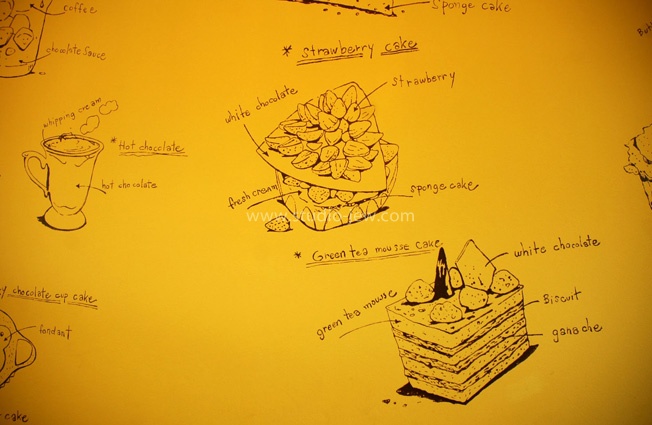 coffee
chocolate Sauce
Sponge cake
* Strawberry cake
strawberry
white chocolate
fresh cream
sponge cake
whipping cream
* Hot chocolate
hot chocolate
* Green tea mousse cake
green tea mousse
white chocolate
Biscuit
ganache
y chocolate cup cake
fondant
cake
But